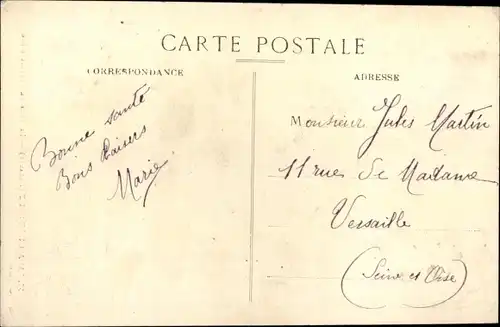 CARTE POSTALE
CORRESPONDANCE
Bonne santé
Bons Baisers
Marie
ADRESSE
Monsieur Jules Martin
11 rue de Madame
Versaille
(Seine et Oise)